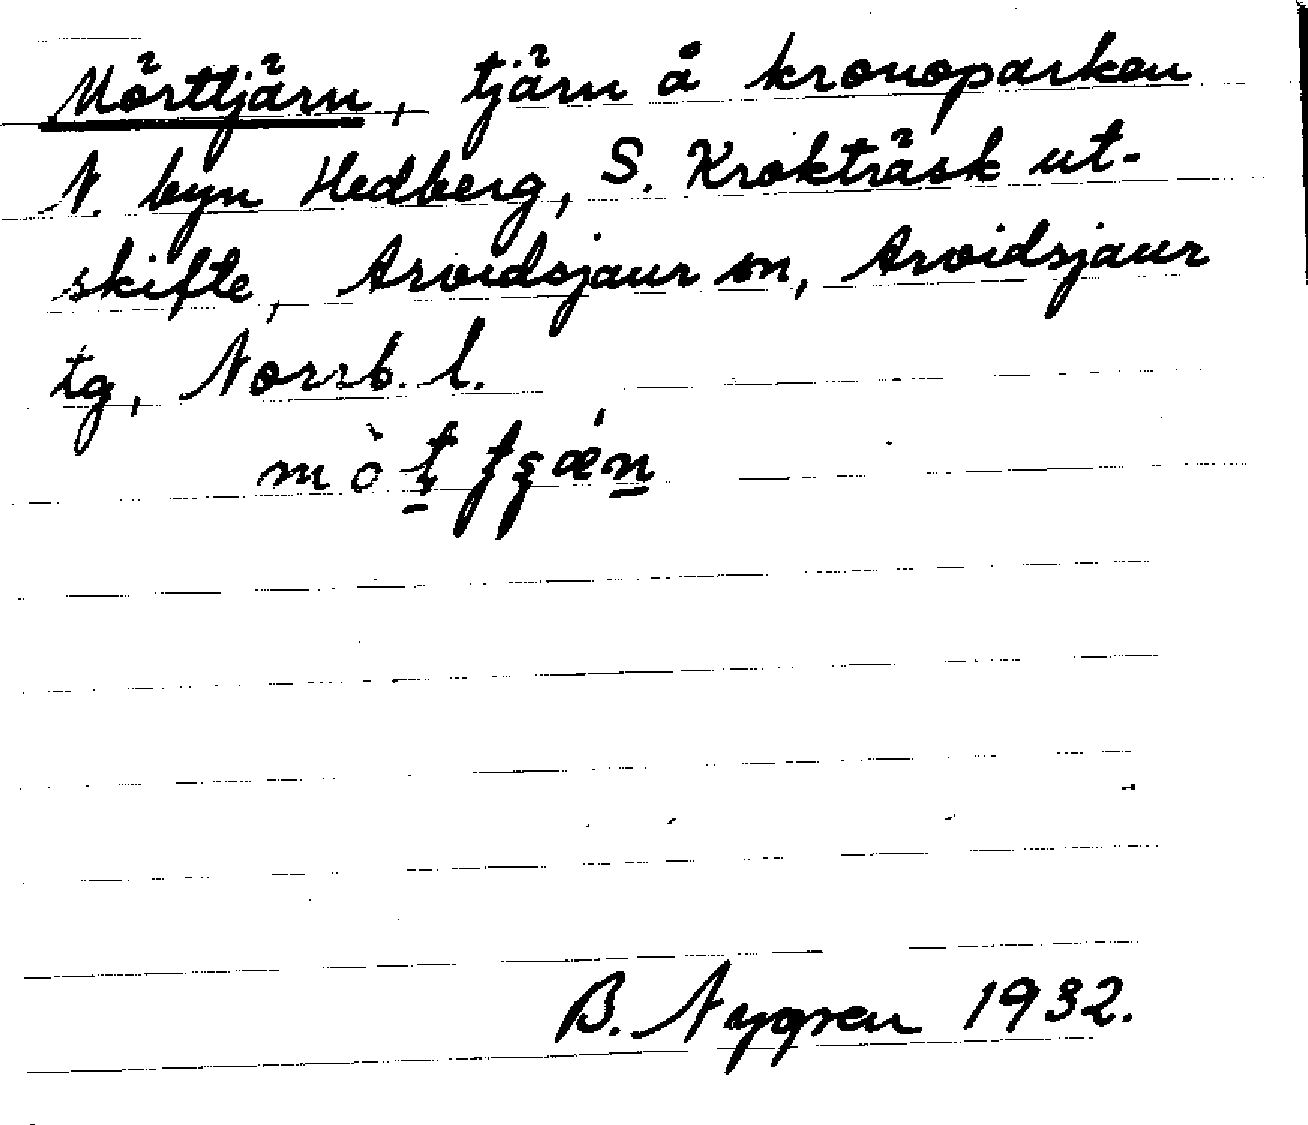 Mörttjärn, tjärn å kronoparken
N. byn Hedberg, S. Krokträsk ut-
skifte, Arvidsjaur sn, Arvidsjaur
tg, Norrb. l.
B. Nygren 1932.